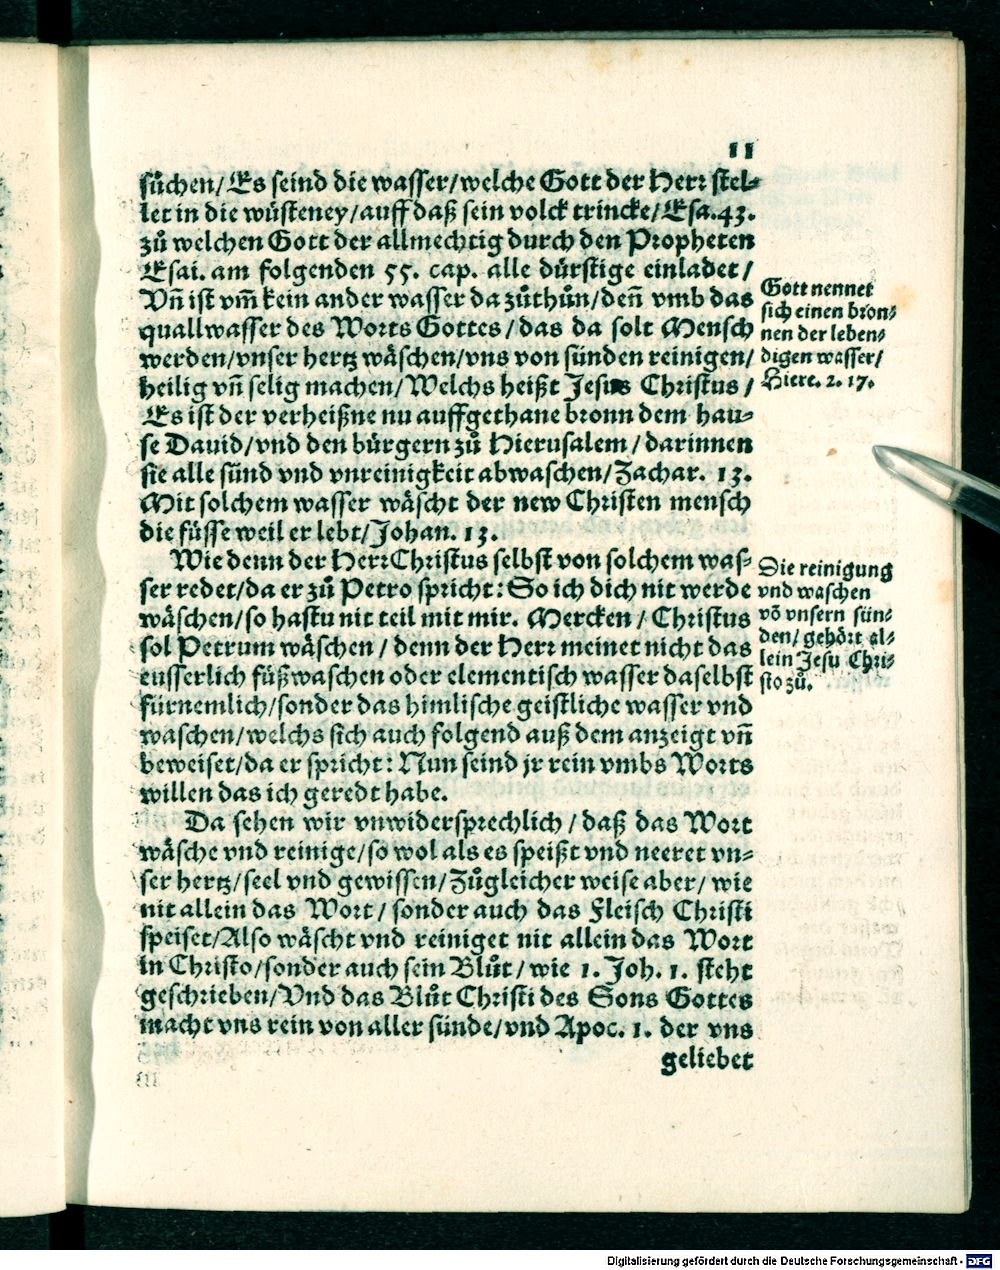 11
sůchen/Es seind die wasser/welche Gott der Herr stel-
let in die wüsteney/auff daß sein volck trincke/Esa.43.
zů welchen Gott der allmechtig durch den Propheten
Esai. am folgenden 55. cap. alle dürstige einladet/
Vñ ist vm̃ kein ander wasser da zůthůn/deñ vmb das
quallwasser des Worts Gottes/das da solt Mensch
werden/vnser hertz wäschen/vns von sünden reinigen/
heilig vñ selig machen/Welchs heißt Jesus Christus/
Es ist der verheißne nu auffgethane bronn dem hau-
se Dauid/vnd den bürgern zů Hierusalem/darinnen
sie alle sünd vnd vnreinigkeit abwaschen/Zachar. 13.
Mit solchem wasser wäscht der new Christen mensch
die füsse weil er lebt/Johan. 13.
Wie denn der Herr Christus selbst von solchem was-
ser redet/da er zů Petro spricht: So ich dich nit werde
wäschen/so hastu nit teil mit mir. Mercken/Christus
sol Petrum wäschen/denn der Herr meinet nicht das
eusserlich füßwaschen oder elementisch wasser daselbst
fürnemlich/sonder das himlische geistliche wasser vnd
waschen/welchs sich auch folgend auß dem anzeigt vñ
beweiset/da er spricht: Nun seind jr rein vmbs Worts
willen das ich geredt habe.
Da sehen wir vnwidersprechlich/daß das Wort
wäsche vnd reinige/so wol als es speißt vnd neeret vn-
ser hertz/seel vnd gewissen/Zůgleicher weise aber/wie
nit allein das Wort/sonder auch das Fleisch Christi
speiset/Also wäscht vnd reiniget nit allein das Wort
in Christo/sonder auch sein Blůt/wie 1. Joh. 1. steht
geschrieben/Vnd das Blůt Christi des Sons Gottes
macht vns rein von aller sünde/vnd Apoc. 1. der vns
geliebet
Gott nennet
sich einen bron-
nen der leben-
digen wasser/
Hiere. 2. 17.
Die reinigung
vnd waschen
võ vnsern sün-
den/gehört al-
lein Jesu Chri-
sto zů.
Digitalisierung gefördert durch die Deutsche Forschungsgemeinschaft - DFG